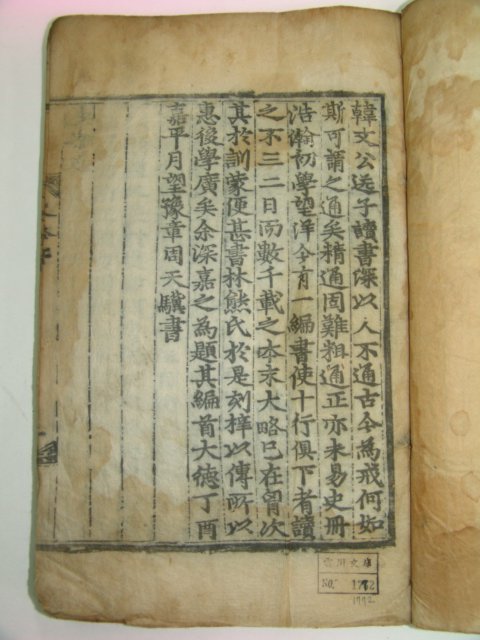 韓文公送子讀書深以人不通古今為戒何如
斯可謂之通矣精通固難粗通正亦未易史冊
浩瀚初學望洋今有一編書使十行俱下者讀
之不三二日而數千載之本末大略已在胷次
其於訓蒙便甚書林熊氏於是刻梓以傳所以
惠後學廣矣余深嘉之為題其編首大德丁酉
嘉平月望豫章周天驥書
文庫
No. 1772
1772